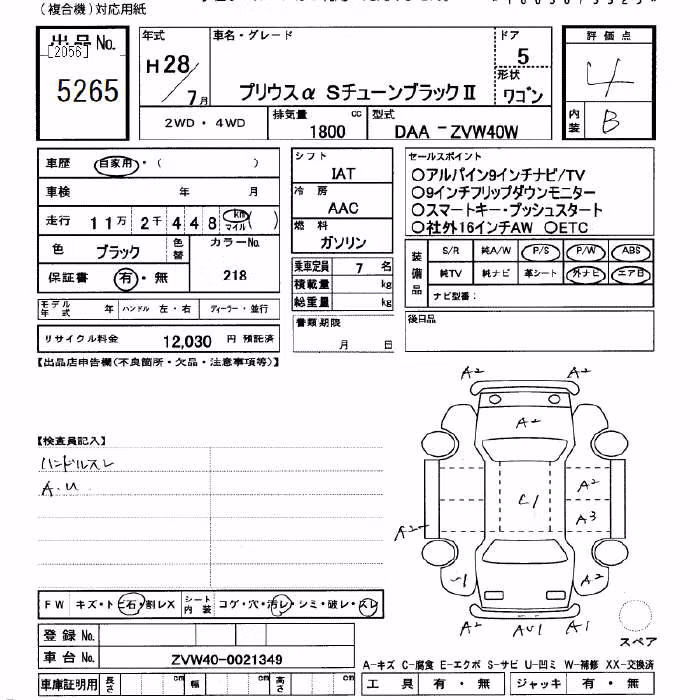 (複合機)対応用紙
出品No.
[2056]
5265
年式
H28/7月
車名・グレード
プリウスα SチューンブラックⅡ
ドア
5
形状
ワゴン
評価点
4
内装
B
2WD・4WD
排気量
1800 cc
型式
DAA-ZVW40W
車歴 自家用・( )
車検 年 月
走行 11万2千448 km マイル ( )
色 ブラック 色替
カラーNo.
218
保証書 有・無
モデル年式 年 ハンドル 左・右 ディーラー・並行
リサイクル料金 12,030 円 預託済
シフト
IAT
冷房
AAC
燃料
ガソリン
乗車定員 7 名
積載量 kg
総重量 kg
書類期限
月 日
セールスポイント
○アルパイン9インチナビ/TV
○9インチフリップダウンモニター
○スマートキー・プッシュスタート
○社外16インチAW ○ETC
装備品
S/R 純A/W P/S P/W ABS
純TV 純ナビ 革シート 外ナビ エアB
ナビ型番:
後日品
【出品店申告欄(不良箇所・欠品・注意事項等)】
【検査員記入】
ハンドルスレ
A.U
A2 A2
A2
C1
A2
A3
A2
U1
A2
A2 AU1 A1
スペア
FW キズ・トビ石・割レX シート内装 コゲ・穴・汚レ・シミ・破レ・スレ
登録No.
車台No. ZVW40-0021349
車庫証明用 長さ cm 幅 cm 高さ cm
A-キズ C-腐食 E-エクボ S-サビ U-凹ミ W-補修 XX-交換済
工具 有・無 ジャッキ 有・無